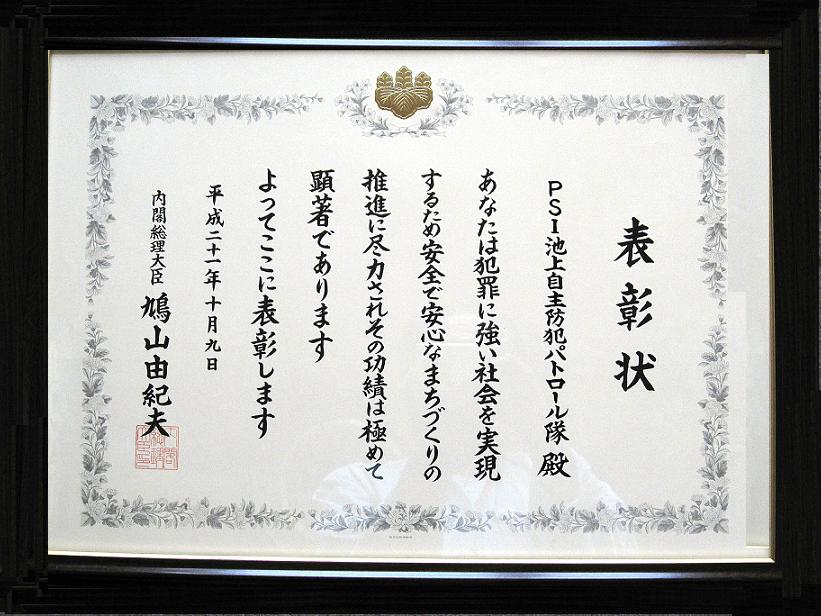 表彰状
PSI池上自主防犯パトロール隊 殿
あなたは犯罪に強い社会を実現
するため安全で安心なまちづくりの
推進に尽力されその功績は極めて
顕著であります
よってここに表彰します
平成二十一年十月九日
内閣総理大臣 鳩山由紀夫